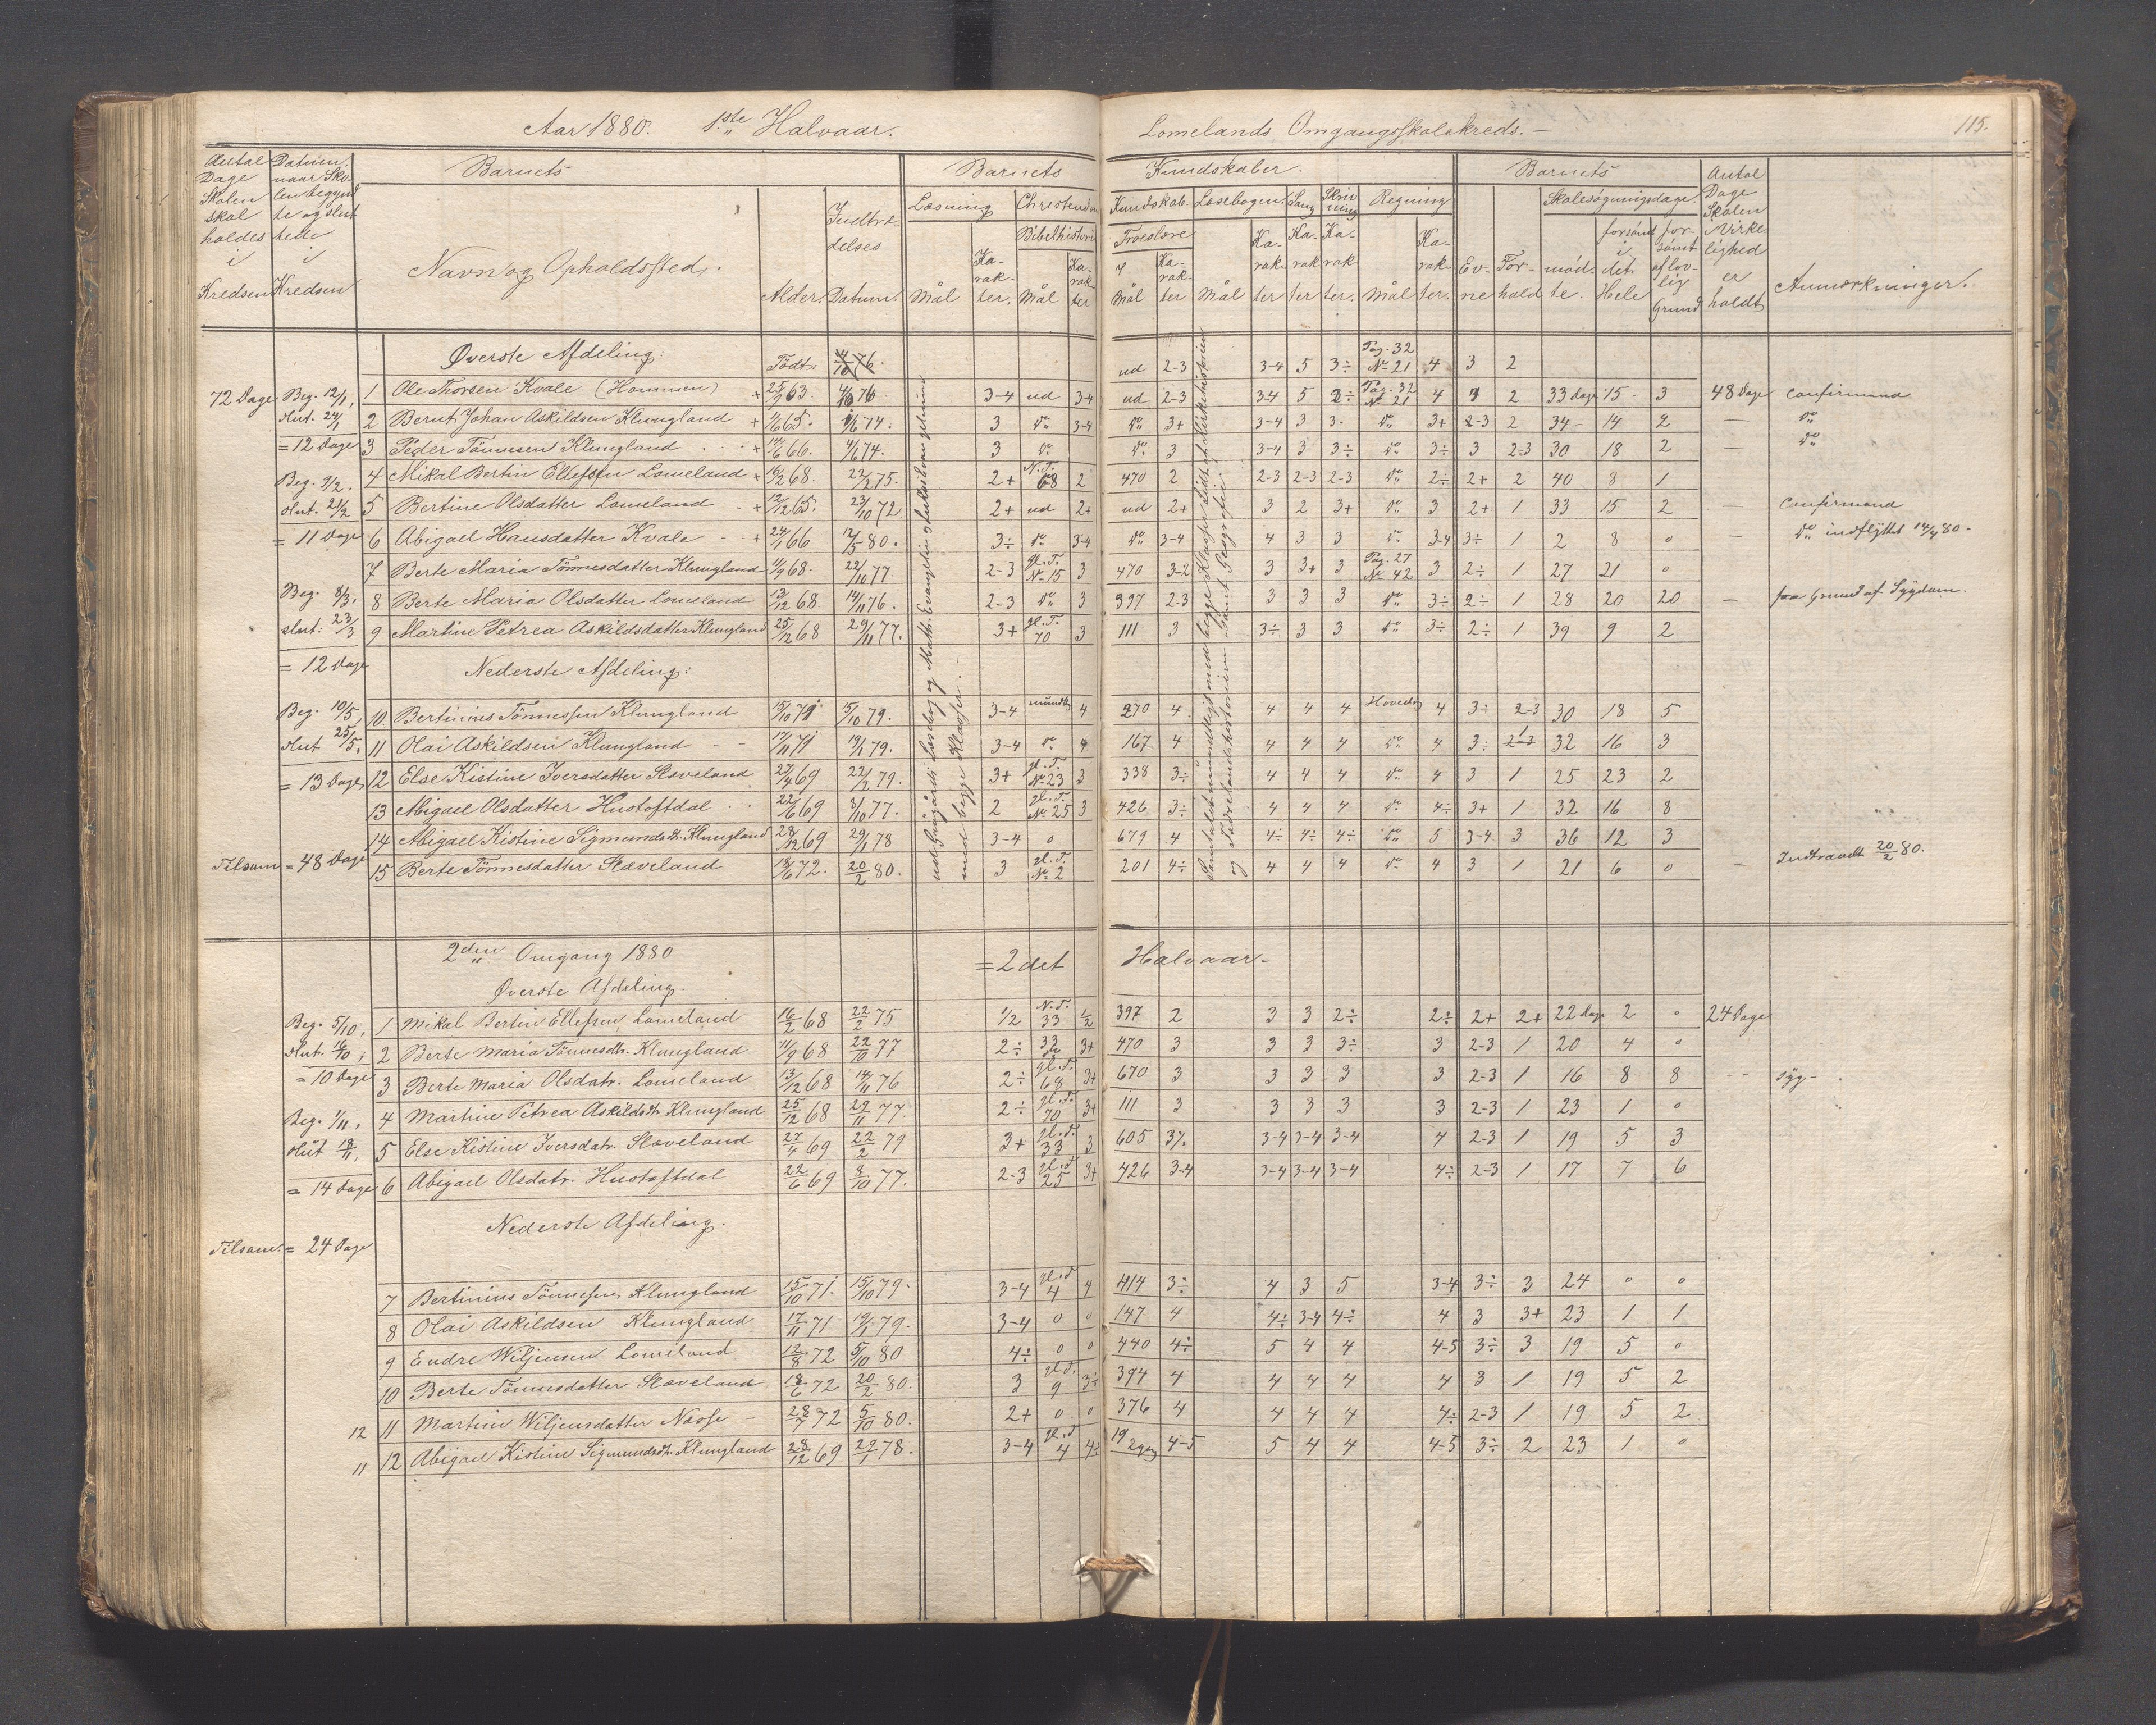 Aar 1880. 1ste Halvaar. Lomelands Omgangsskolekreds. — 115.
Antal Dage Skolen skal holdes i Kredsen
Datum naar Skolen begyndte og sluttede i Kredsen
Barnets
Navn og Opholdssted.
Alder.
Indtrædelses Datum.
Barnets Kundskaber.
Læsning
Mål
Karakter.
Christendom
Bibelhistorie
Mål
Karakter
Kundskab.
Troeslære
Mål
Karakter
Læsebogen.
Mål
Karakter
Sang
Karakter
Skrivning
Karakter.
Regning
Mål
Karakter.
Barnets
Evne
Forhold
Skolesøgningsdage.
mødte.
forsømt i det Hele
forsømt af lovlig Grund
Antal Dage Skolen Virkelighed er holdt
Anmærkninger.
Øverste Afdeling: Födt: 4/10 76. ud 2-3 3-4 5 3÷ Pag. 32 No 21 4 3 2
72 Dage Beg. 12/1, 1 Ole Thorsen Kvale (Hammen) + 25/9 63. 4/10 76 3-4 ud 3-4 ud 2-3 3-4 5 2÷ Pag. 32 No 21 4 2 33 dage 15 3 48 Dage Confirmand
slut. 24/1 2 Bernt Johan Askildsen Klungland + 1/6 65. 1/6 74. 3 do 3-4 do 3+ 3-4 3 3. do 3+ 2-3 2 34 - 14 2 — do
= 12 Dage 3 Peder Tönnesen Klungland + 14/6 66. 4/6 74. 3 do do 3 3-4 3 3÷ do 3÷ 3 2-3 30 18 2 — do
Beg. 9/2. 4 Mikal Bertin Ellefsen Lomeland + 16/2 68. 22/2 75. 2+ N.T. 68 2 470 2 2-3 2-3 2-3 do 2÷ 2+ 2 40 8 1
slut. 21/2 5 Bertine Olsdatter Lomeland + 12/12 65. 23/10 72 2+ ud 2+ ud 2+ 3 2 3+ do 3 2+ 1 33 15 2 — Confirmand
= 11 Dage 6 Abigael Hansdatter Kvale + 24/1 66 12/5 80. 3÷ do 3-4 do 3-4 4 3 3 do 3-4 3÷ 1 2 8 0 — do indflÿttet 14/4 80.
7 Berte Maria Tönnesdatter Klungland 11/9 68. 22/10 77. 2-3 gl. T. No 15 3 470 3-2 3 3+ 3 Pag. 27 No 42 3 2÷ 1 27 21 0
Beg. 8/3, 8 Berte Maria Olsdatter Lomeland 13/12 68. 14/11 76. 2-3 do 3 397 2-3 3 3 3 do 3÷ 2÷ 1 28 20 20 — paa Grund af Sygdom.
slut: 23/3 9 Martine Petrea Askildsdatter Klungland 25/12 68 29/11 77. 3+ gl. T. 70 3 111 3 3÷ 3 3 do 3÷ 2÷ 1 39 9 2
= 12 Dage Nederste Afdeling:
Beg. 10/5, 10. Bertinius Tönnessen Klungland 15/10 71 15/10 79. 3-4 mundtlig 4 270 4 4 4 4 Hoved 4 3÷ 2-3 30 18 5
slut 25/5, 11 Olai Askildsen Klungland 17/11 71 19/1 79. 3-4 do 4 167 4 4 4 4 do 4 3÷ 1 32 16 3
= 13 Dage, 12 Else Kistine Iversdatter Slæveland 27/4 69 22/2 79. 3+ gl. T. No 23 3 338 3÷ 4 4 4 do 4 3 1 25 23 2
13 Abigael Olsdatter Hustoftdal 22/6 69 8/10 77. 2 gl. T. No 25 3 426 3÷ 4 4 4 do 4÷ 3+ 1 32 16 8
14 Abigael Kistine Sigmundsdtr. Klungland 28/12 69 29/1 78 3-4 0 679 4 4÷ 4÷ 4÷ do 5 3-4 3 36 12 3
Tilsam = 48 Dage 15 Berte Tönnesdatter Slæveland 18/6 72. 20/2 80. 3 gl. T. No 2 201 4÷ 4 4 4 do 4 3 1 21 6 0 — Indtraadt 20/2 80.
og Fædrelandshistorien Samt Geografie.
med begge Klasser.
2den Omgang 1880 = 2det Halvaar -
Øverste Afdeling.
Beg. 5/10, 1 Mikal Bertin Ellefsen Lomeland 16/2 68 22/2 75 1/2 N. T. 33 397 2 3 3 2÷ 2÷ 2+ 2+ 22 dage 2 0 24 Dage
slut. 16/10, 2 Berte Maria Tönnesdtr. Klungland 11/9 68 22/10 77 2÷ 33 3+ 470 3 3 3 3÷ 3 2-3 1 20 4 0
= 10 Dage 3 Berte Maria Olsdatr. Lomeland 13/12 68 14/11 76 2÷ gl. T. 68 3+ 670 3 3 3 3 3 2-3 1 16 8 8 syg -
Beg. 1/11, 4 Martine Petrea Askildsdtr. Klungland 25/12 68 29/11 77. 2÷ gl. T. 70 3+ 111 3 3 3 3 3 2-3 1 23 1 0
slut 18/11, 5 Else Kistine Iversdatr. Slæveland 27/4 69 22/2 79 3+ gl. T. 33 3 605 3-4 3-4 3-4 4 2-3 1 19 5 3
= 14 Dage 6 Abigael Olsdatr. Hustoftdal 22/6 69 8/10 77. 2-3 gl. T. 25 3+ 426 3-4 3-4 3-4 3-4 4÷ 2-3 1 17 7 6
Nederste Afdeling.
Tilsam. = 24 Dage
7 Bertinius Tönnesen Klungland 15/10 71. 15/10 79. 3-4 gl. T 4 4 414 3÷ 4 3 5 3-4 3÷ 3 24 0 0
8 Olai Askildsen Klungland 17/11 71 19/1 79. 3-4 0 0 147 4 4÷ 3-4 4÷ 4 3 3+ 23 1 1
9 Endre Wiljensen Lomeland 12/8 72 5/10 80 4÷ 0 0 440 4÷ 5 4 4 4-5 3÷ 3 19 5 0
10 Berte Tönnesdatter Slæveland 18/6 72 20/2 80. 3 gl. T. 9 3÷ 394 4 4 4 4 4 3 1 19 5 2
12 11 Martine Wiljensdatter Nasse - 28/7 72 5/10 80. 2+ 0 0 376 4 4 4 4 4÷ 2-3 1 19 5 2
11 12 Abigael Kistine Sigmundsdtr. Klungland 28/12 69 29/1 78. 3-4 gl. T 4 4÷ 19 4-5 5 4 4 4-5 3÷ 2 23 1 0